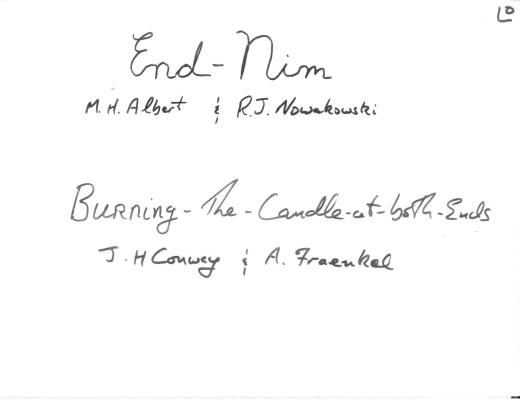 End-Nim
M.H.Albert & R.J. Nowakowski
Burning-The-Candle-at-both-Ends
J.H Conway & A. Fraenkel